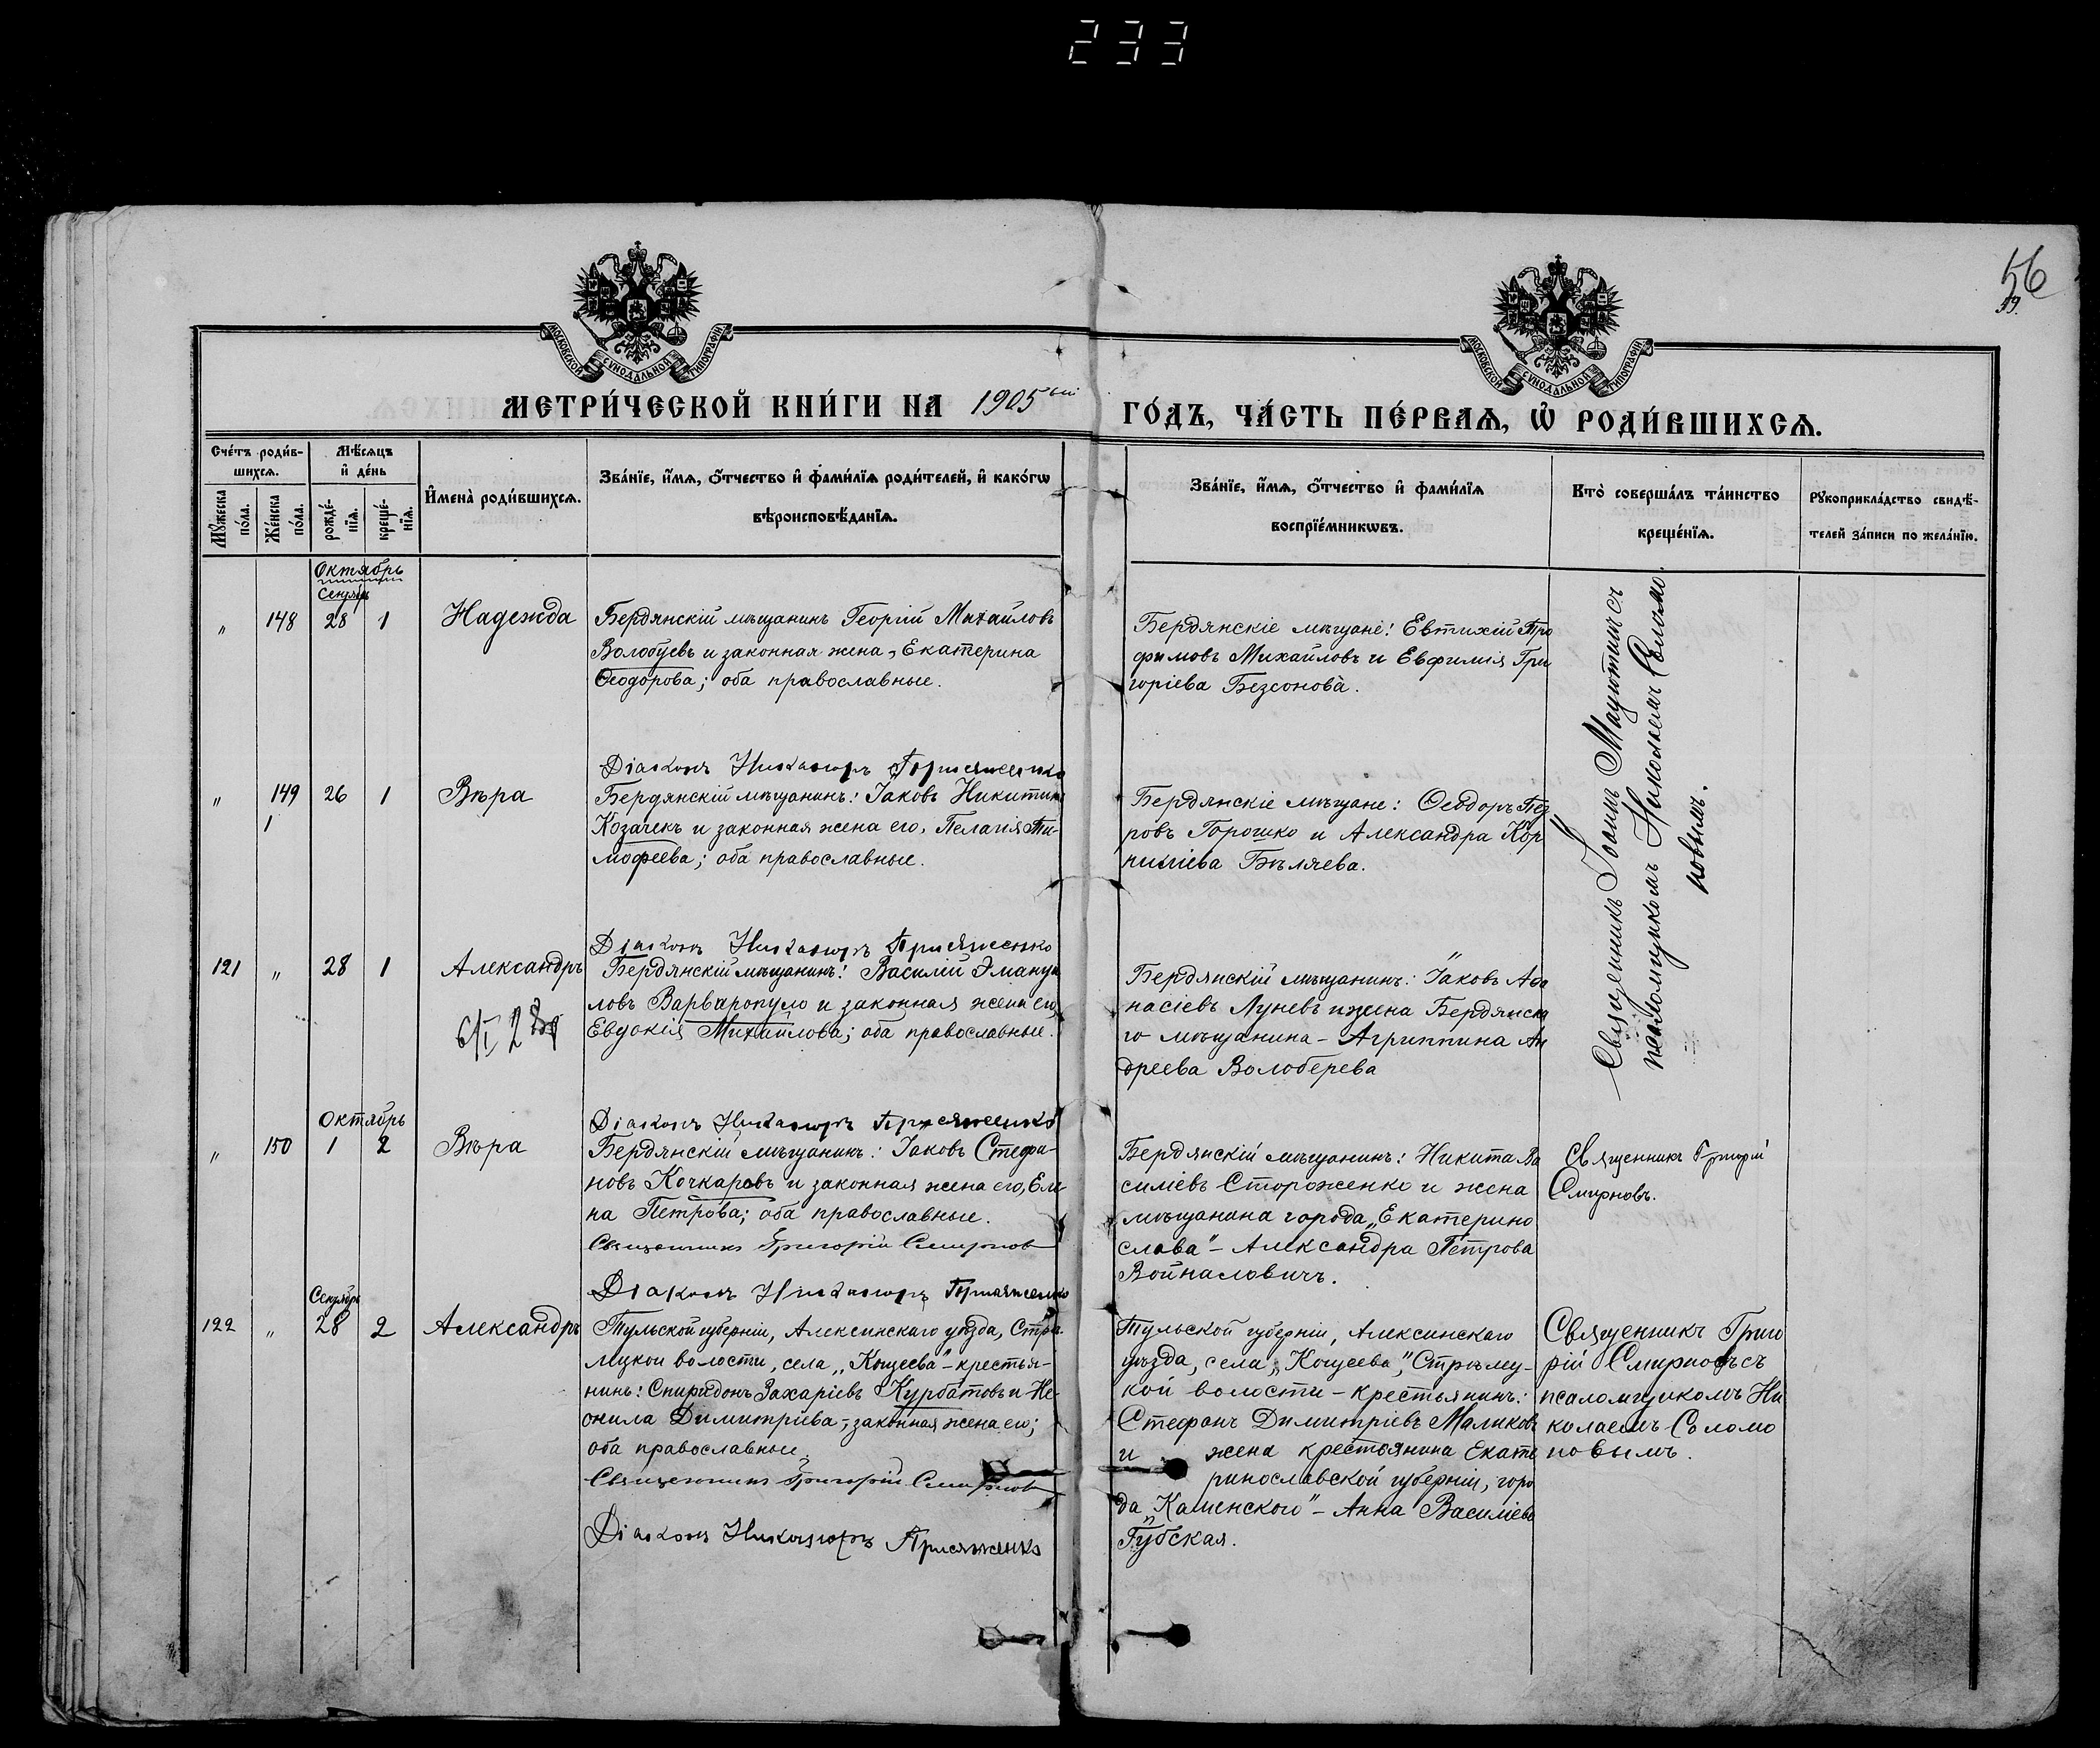 233
56
МОСКОВСКОЙ СѴНОДАЛЬНОЙ ТИПОГРАФІИ
МОСКОВСКОЙ СѴНОДАЛЬНОЙ ТИПОГРАФІИ
МЕТРИ́ЧЕСКОЙ КНИ́ГИ НА 1905ый ГО́ДЪ, ЧА́СТЬ ПЕ́РВАѦ, Ѡ҆ РОДИ́ВШИХСѦ.
Сче́тъ роди́в-
шихсѧ.
Мꙋ́жеска
по́ла.
Же́нска
по́ла.
Мѣ́сѧцъ
и҆ де́нь
рожде́-
нїѧ.
креще́-
нїѧ.
И҆мена̀ роди́вшихсѧ.
Зва́нїе, и҆́мѧ, ѻ҆́тчество и҆ фами́лїѧ роди́телей, и҆ како́гѡ
вѣроисповѣ́данїѧ.
Зва́нїе, и҆́мѧ, ѻ҆́тчество и҆ фами́лїѧ
воспрїе́мникѡвъ.
Кто̀ соверша́лъ та́инство
креще́нїѧ.
Рꙋкоприкла́дство свидѣ́-
телей за́писи по жела́нїю.
Октябрь
Сентяб
" 148 28 1 Надежда
Бердянскій мѣщанинъ Георгій Михайловъ
Волобуевъ и законная жена, Екатерина
Ѳеодорова; оба православные.
Бердянскіе мѣщане: Евтихій Тро
фимовъ Михайловъ и Евфимія Гри
горіева Безсонова.
Священникъ Іоаннъ съ
псаломщикомъ Николаемъ Соломо
новымъ.
Діаконъ Никаноръ Присяженко
" 149 26 1 Вѣра
1
Бердянскій мѣщанинъ: Іаковъ Никитинъ
Козачекъ и законная жена его, Пелагія Ти-
мофеева; оба православные.
Бердянскіе мѣщане: Ѳеодоръ
ровъ Горошко и Александра Кор
ниліева Бѣляева.
Діаконъ Никаноръ Присяженко
121 " 28 1 Александръ
6/I 2
Бердянскій мѣщанинъ: Василій Эмануи
ловъ Варваропуло и законная жена его,
Евдокія Михайлова; оба православные.
Бердянскій мѣщанинъ: Іаковъ Аѳа
насіевъ Луневъ и жена Бердянска
го мѣщанина - Агриппина Ан
дреева Волоберева
Діаконъ Никаноръ Присяженко
Октябрь
" 150 1 2 Вѣра
Бердянскій мѣщанинъ: Іаковъ Стефа-
новъ Кочкаровъ и законная жена его, Еле
на Петрова; оба православные.
Священникъ Григорій Смирнов
Бердянскій мѣщанинъ: Никита Ва
силіевъ Стороженко и жена
мѣщанина города „Екатерино
слава" - Александра Петрова
Войналовичъ.
Священникъ Григорій
Смирновъ.
Діаконъ Никаноръ Присяженко
Сентябрь
122 " 28 2 Александръ
Тульской губерніи, Алексинскаго уѣзда, Стрѣ-
лецкой волости, села „Кощеева" - крестья-
нинъ: Спиридонъ Захаріевъ Курбатовъ и Не-
онила Димитріева, - законная жена его;
оба православные.
Священникъ Григорій Смирнов
Діаконъ Никаноръ Присяженко
Тульской губерніи, Алексинскаго
уѣзда, села „Кощеева", Стрѣлец-
кой волости - крестьянинъ:
Стефанъ Димитріевъ Маликовъ
и жена крестьянина Екате
ринославской губерніи, горо
да „Каменского" - Анна Василіева
Губская.
Священникъ Григо
рій Смирновъ съ
псаломщикомъ Ни
колаемъ Соломо
новымъ.